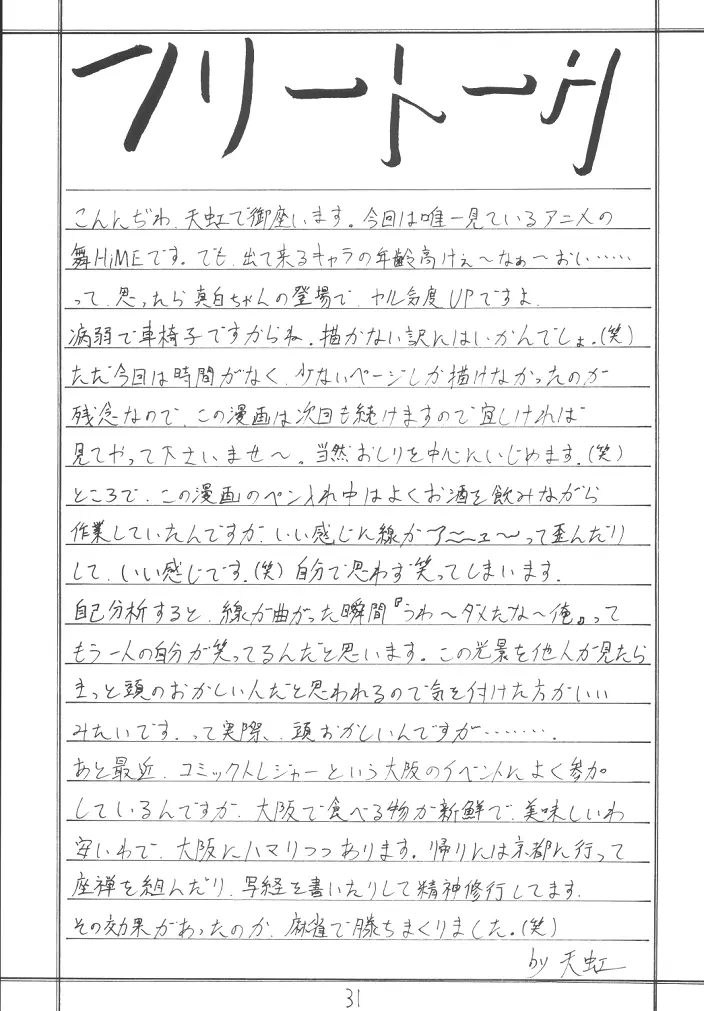 フリートーク
こんんぢわ、天虹で御座います。今回は唯一見ているアニメの
舞HiMEです。でも、出て来るキャラの年齢高けぇ～なぁ～おい……
って、思ったら真白ちゃんの登場で、ヤル気度UPですよ、
病弱で車椅子ですからね、描かない訳にはいかんでしょ。(笑)
ただ今回は時間がなく、少ないページしか描けなかったのが
残念なので、この漫画は次回も続けますので宜しければ
見てやって下さいませ～。当然おしりを中心にいじめます。(笑)
ところで、この漫画のペン入れ中はよくお酒を飲みながら
作業していたんですが、いい感じに線が了～ュ～って歪んだり
して、いい感じです。(笑)自分で思わず笑ってしまいます。
自己分析すると、線が曲がった瞬間『うわ～ダメだな～俺』って
もう一人の自分が笑ってるんだと思います。この光景を他人が見たら
きっと頭のおかしい人だと思われるので気を付けた方がいい
みたいです、って実際、頭おかしいんですが………。
あと最近、コミックトレジャーという大阪のイベントによく参加
しているんですが、大阪で食べる物が新鮮で、美味しいわ
安いわで、大阪にハマりつつあります。帰りには京都に行って
座禅を組んだり、写経を書いたりして精神修行してます。
その効果があったのか、麻雀で勝ちまくりました。(笑)
by 天虹
31